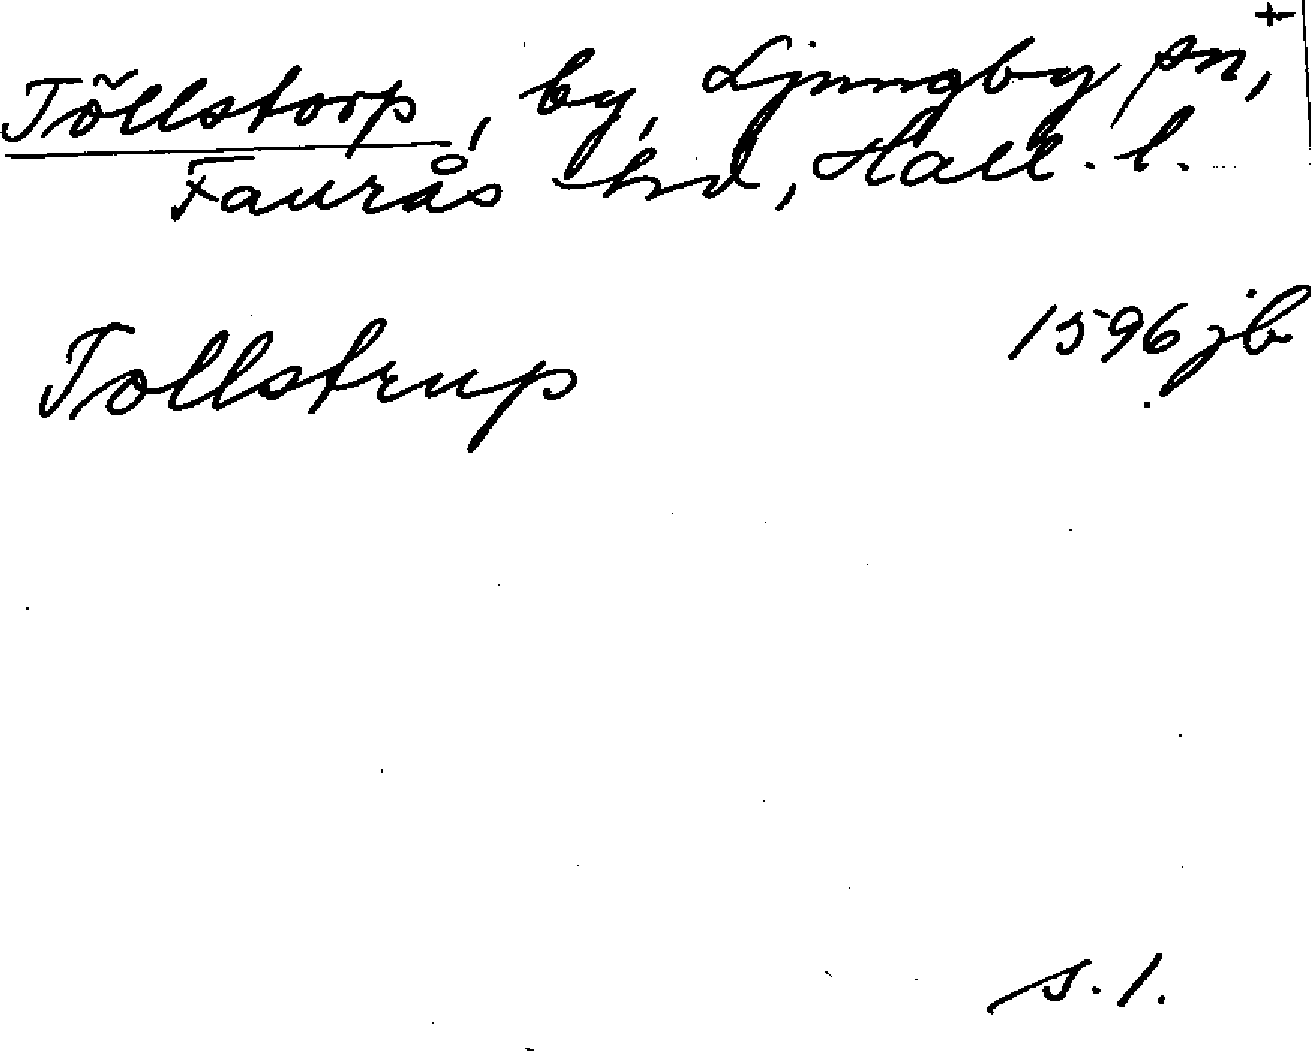 Töllstorp, by, Ljungby sn, †
Faurås hd, Hall. l.
Tollstrup 1596 jb
s. 1.